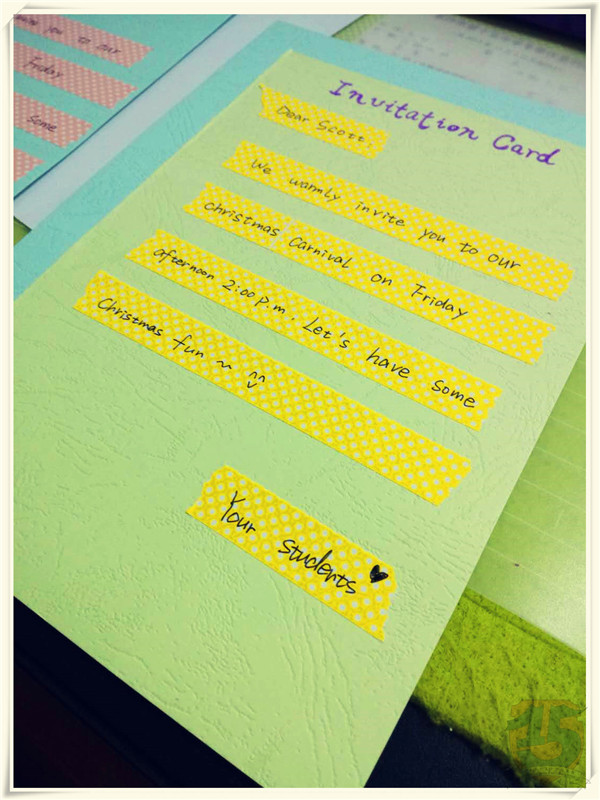 you to our
Friday
Some
Invitation Card
Dear Scott,
We warmly invite you to our
Christmas Carnival on Friday
afternoon 2:00 p.m. Let's have some
Christmas fun ~ ^^
Your students ♥